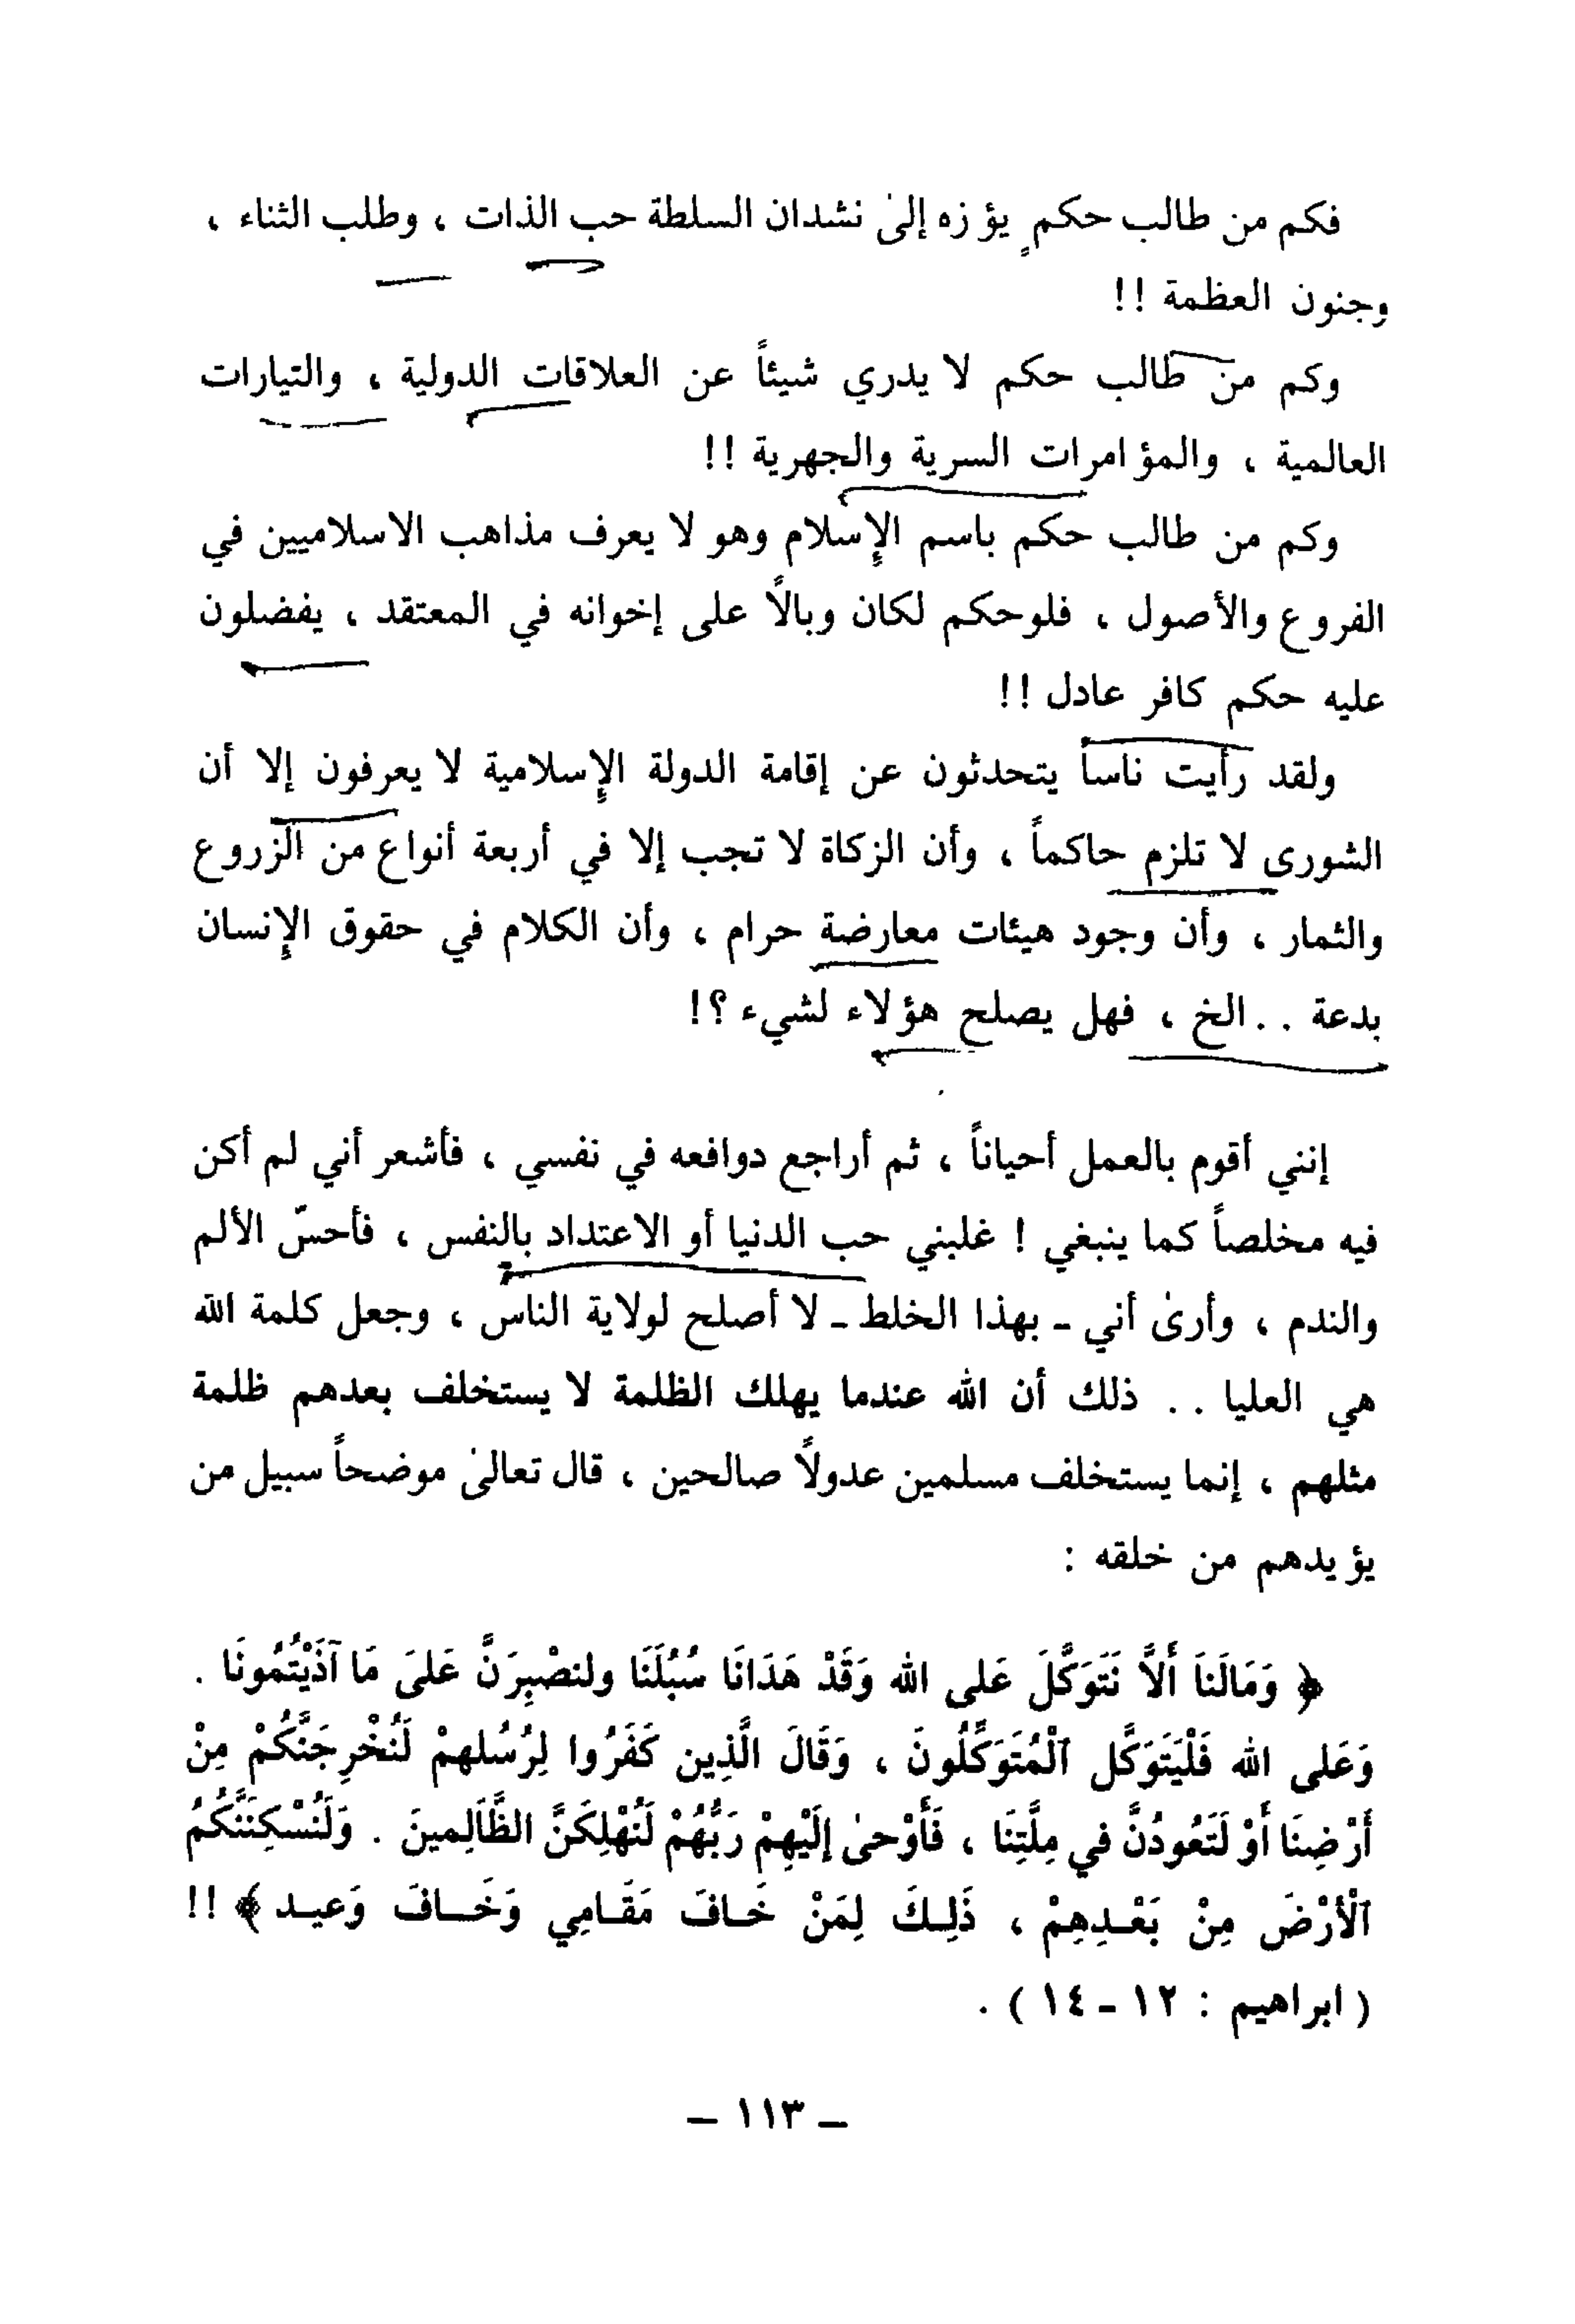 فكم من طالب حكمٍ يؤزه إلىٰ نشدان السلطة حب الذات ، وطلب الثناء ،
وجنون العظمة !!
وكم من طالب حكم لا يدري شيئاً عن العلاقات الدولية ، والتيارات
العالمية ، والمؤامرات السرية والجهرية !!
وكم من طالب حكم باسم الإِسلام وهو لا يعرف مذاهب الاسلاميين في
الفروع والأصول ، فلوحكم لكان وبالاً على إخوانه في المعتقد ، يفضلون
عليه حكم كافر عادل !!
ولقد رأيت ناساً يتحدثون عن إقامة الدولة الإِسلامية لا يعرفون إلا أن
الشورى لا تلزم حاكماً ، وأن الزكاة لا تجب إلا في أربعة أنواع من الزروع
والثمار ، وأن وجود هيئات معارضة حرام ، وأن الكلام في حقوق الإِنسان
بدعة . . الخ ، فهل يصلح هؤلاء لشيء ؟!
إنني أقوم بالعمل أحياناً ، ثم أراجع دوافعه في نفسي ، فأشعر أني لم أكن
فيه مخلصاً كما ينبغي ! غلبني حب الدنيا أو الاعتداد بالنفس ، فأحسّ الألم
والندم ، وأرىٰ أني ـ بهذا الخلط ـ لا أصلح لولاية الناس ، وجعل كلمة الله
هي العليا . . ذلك أن الله عندما يهلك الظلمة لا يستخلف بعدهم ظلمة
مثلهم ، إنما يستخلف مسلمين عدولاً صالحين ، قال تعالىٰ موضحاً سبيل من
يؤيدهم من خلقه :
﴿ وَمَالَنَا أَلاَّ نَتَوَكَّلَ عَلى الله وَقَدْ هَدَانَا سُبُلَنَا ولنصْبِرَنَّ عَلىَ مَا آذَيْتُمُونَا .
وَعَلى الله فَلْيَتَوَكَّل ٱلْمُتَوَكِّلُونَ ، وَقَالَ الَّذِين كَفَرُوا لِرُسُلهمْ لَنُخْرِجَنَّكُمْ مِنْ
أَرْضِنَا أَوْ لَتَعُودُنَّ في مِلَّتِنَا ، فَأَوْحىٰ إلَيْهِمْ رَبُّهُمْ لَنُهْلِكَنَّ الظَّالِمينَ . وَلَنُسْكِنَنَّكُمُ
ٱلْأرْضَ مِنْ بَعْـدِهِمْ ، ذَلِـكَ لِمَنْ خَـافَ مَقَـامِي وَخَـافَ وَعيـد ﴾ !!
( ابراهيم : ١٢ ـ ١٤ ) .
ـ ١١٣ ـ